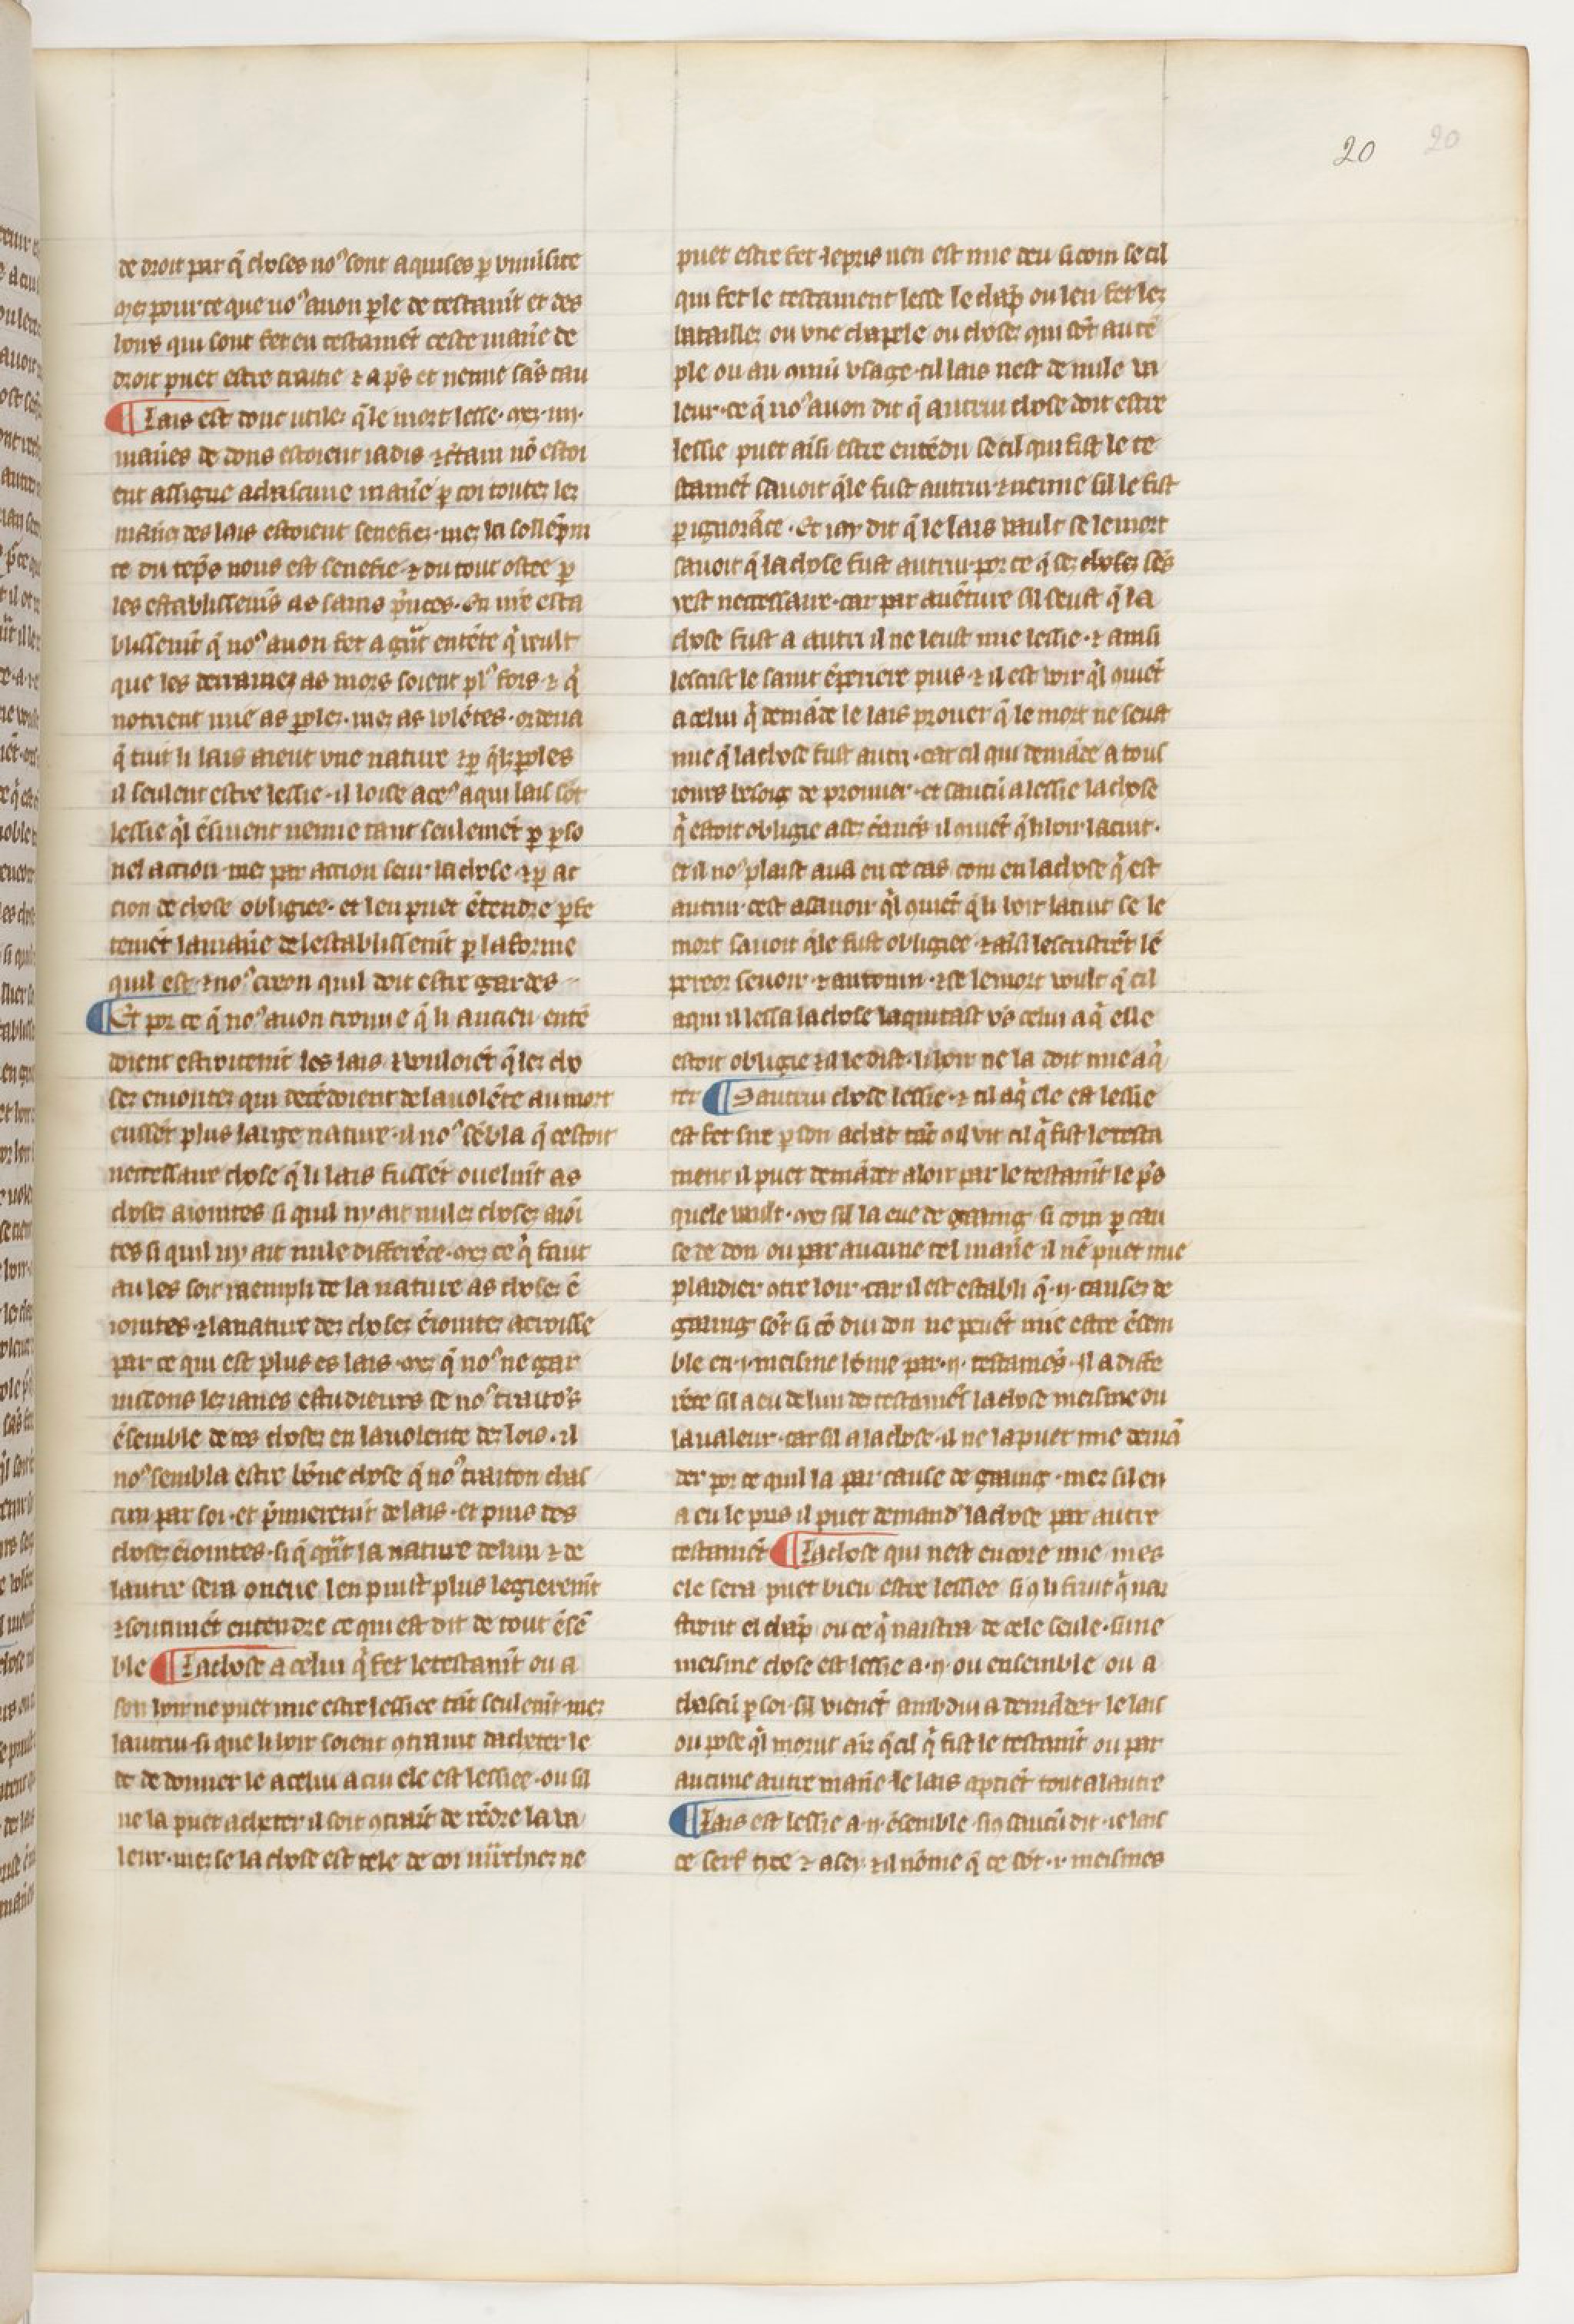 20 20
de droit par q̃ choses noꝰ sont aquises ꝑ vniũsite
mez pour ce que noꝰ auon ꝑle de testam̃t et des
lons qui sont fet en testamẽt ceste mañe de
droit puet estre traitie ⁊ ap̃s et nenne sãs cau
¶ Lais est donc utile q̃ le mort lesse. mez .iiij.
mañes de dons estoient iadis ⁊ c̃tain nõ estoi
ent assigne a chascune mañe ꝑ coi toutez lez
mañez des lais estoient senefiez. mez la sollẽpni
te du tẽps nous est senefie ⁊ du tout ostee ꝑ
les establissem̃s as sains p̃nces. En ñre esta
blissem̃t q̃ noꝰ auon fet a g̃nt entẽte q̃ veult
que les derrainez as mors soient plꝰ fors ⁊ q̃
notrient mie as ꝑolez. mez as volẽtes. ordena
q̃ tuit li lais aient vne nature ⁊ ꝑ q̃lz ꝑoles
il seulent estre lessie. il loise a ceꝰ a qui lais sõt
lessie q̃l ẽsiuent nenne tant seulemẽt ꝑ ꝑso
nel action. mez par action seur la chose ⁊ ꝑ ac
tion de chose obligiee. et len puet ẽtendre ꝑfe
temẽt la mañe de lestablissem̃t ꝑ la forme
quil est ⁊ noꝰ creon quil doit estre gardes
¶ Et por ce q̃ noꝰ auon trouue q̃ li ancien entẽ
doient estroitem̃t les lais ⁊ vouloiẽt q̃ lez cho
sez enioutez qui decẽdoient de la volẽte au mort
eussẽt plus large nature. il noꝰ sẽbla q̃ cestoit
necessaire chose q̃ li lais fussẽt ouelm̃t as
chosez aiointes si quil ny ait nulez chosez aioĩ
tes si quil ny ait nule differẽce. mez ce q̃ faut
au les soit raempli de la nature as chosez ẽ
iointes ⁊ la nature dez chosez ẽiointez acroisse
par ce qui est plus es lais. mez q̃ noꝰ ne gar
nissons lez ianes estudieurs se noꝰ traitõs
ẽsemble de ces chosez en la volente dez lois. il
noꝰ sembla estre bõne chose q̃ noꝰ traiton chas
cun par soi. et p̃mierem̃t de lais. et puis des
chosez ẽiointes. si q̃ q̃nt la nature de lun ⁊ de
lautre sera oneue len puist plus legierem̃t
⁊ soutimẽt entendre ce qui est dit de tout ẽsẽ
ble ¶ La chose a celui q̃ fet le testam̃t ou a
son hoir ne puet mie estre lessiee tãt seulem̃t. mez
lautrui. si que li hoir soient ꝯtraint dacheter le
⁊ de donner le a celui a cui ele est lessiee. ou sil
ne la puet acheter il soit ꝯtraĩt de rẽdre la va
leur. mez se la chose est tele de coi m̃rchiez ne
puet estre fet le pris nen est mie deu si com se cil
qui fet le testament lesse le chãp ou len fet lez
bataillez ou vne chapele ou chosez qui sõt au tẽ
ple ou au ꝯmũ vsage. cil lais nest de nule va
leur. ce q̃ noꝰ auon dit q̃ autrui chose doit estre
lessie puet aĩsi estre entẽdu se cil qui fist le te
stamẽt sauoit q̃le fust autrui ⁊ nenne sil le fist
ꝑ ignorãce. Et iay dit q̃ le lais vault se le mort
sauoit q̃ la chose fust autrui. por ce q̃ sez chosez sõs
uest necessaire. car par auẽture sil seust q̃ la
chose fust a autrui il ne leust mie lessie. ⁊ ainsi
lescrist le saint ẽperiere pius. ⁊ il est voir q̃l ꝯuiẽt
a celui q̃ demãde le lais prouer q̃ le mort ne seust
mie q̃ la chose fust autri. car cil qui demãde a tous
iours besoig de prouuer. et saucũ a lessie la chose
q̃ estoit obligie as c̃ancs il ꝯuiẽt q̃ li hoir lacuit.
et il noꝰ plaist ausi en ce cas com en la chose q̃ est
autrui. cest asauoir q̃l ꝯuiẽt q̃ li hoir lacuit se le
mort sauoit q̃le fust obligiee ⁊ aĩsi lescristrẽt lẽ
pereor seuoir ⁊ antonin. ⁊ se le mort voult q̃ cil
a qui il lessa la chose laquitast ṽs celui a q̃ elle
estoit obligie ⁊ il le dist. li hoir ne la doit mie aq̃
ter ¶ Sautrui chose lessie. ⁊ cil a q̃ ele est lessie
est fet sire ꝑ son achat tãt ꝯil vit cil q̃ fist le testa
ment il puet demãder a loir par le testam̃t le p̃s
quele vault. mez sil la eue de gaaing si com ꝑ cau
se de don ou par aucune tel mañe il nẽ puet mie
plaidier ꝯtre loir. car il est establi q̃ .ij. causes de
gaaing sõt si cõ dui don ne peuẽt mie estre ẽsem
ble en .i. meisme hõme par .ij. testamẽs. Il a diffe
rẽce sil a eu de lun dez testamẽs la chose meisme ou
la valeur. car sil a la chose. il ne la puet mie demã
der por ce quil la par cause de gaaing. mez sil en
a eu le pris il puet demand̾ la chose par autre
testamẽt ¶ La chose qui nest encore mie mes
ele sera puet bien estre lessiee si ꝯ li fruit q̃ nai
stront el chãp ou ce q̃ naistra de cele seule. sune
meisme chose est lessie a .ij. ou ensemble ou a
chascũ ꝑ soi. sil vienẽt ambdui a demãder le lais
ou pose q̃l morut aĩz q̃ cil q̃ fist le testam̃t ou par
aucune autre mañe le lais aptiẽt tout a lautre
¶ Lais est lessie a .ij. ẽsemble si ꝯ saucũ dit. ie lais
ce serf tyce ⁊ a sey. ⁊ il nõme q̃ ce sõt .v. meismes